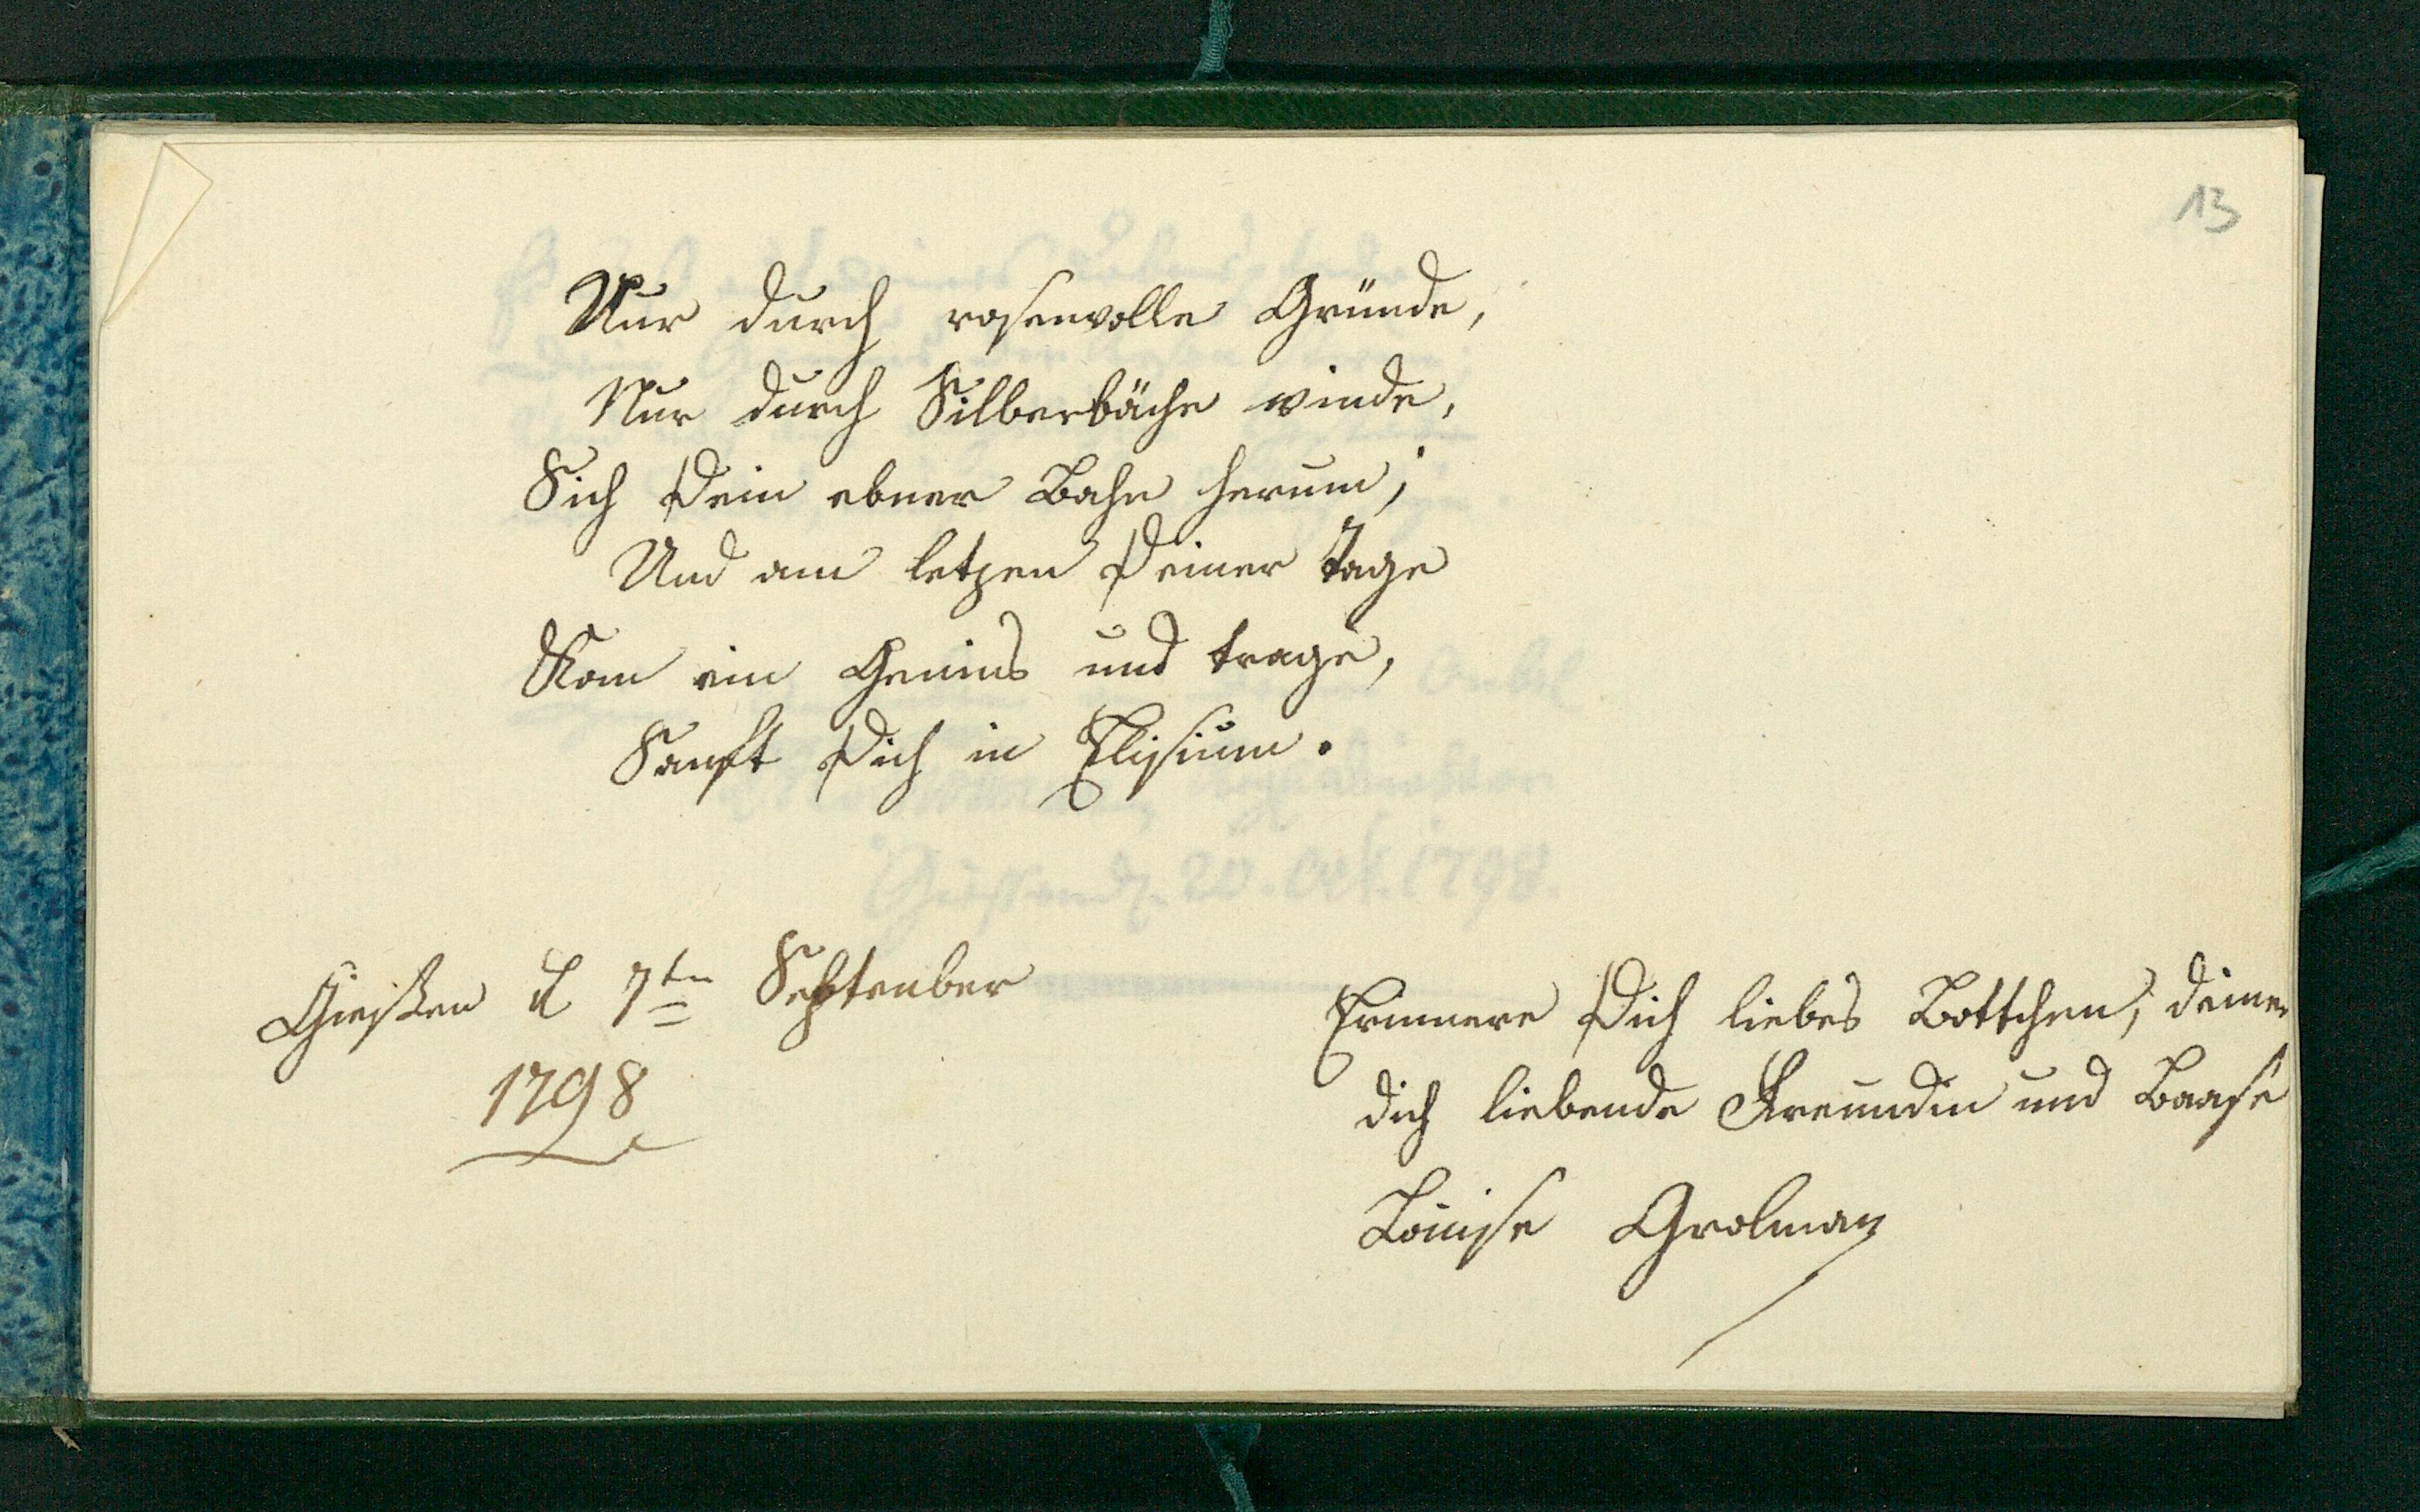 13
Nur durch rosenvolle Gründe,
Nur durch Silberbäche winde,
Sich Dein ebner Bahn herum;
Und am letzen Deiner Tage
Kom ein Genius und trage,
Sanft Dich in Elisium.
Giesen d 7ten September
1798
Erinnere Dich liebes Lottchen, deiner
dich liebende Freundin und Baase
Louise Grolman